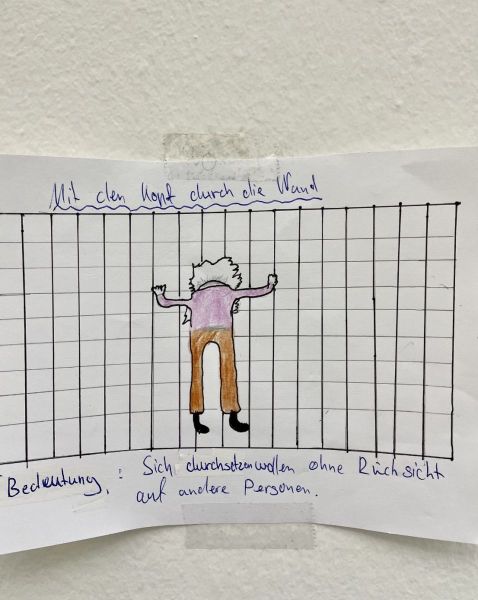 Mit den Kopf durch die Wand
Bedeutung: Sich durchsetzen wollen ohne Rücksicht
auf andere Personen.